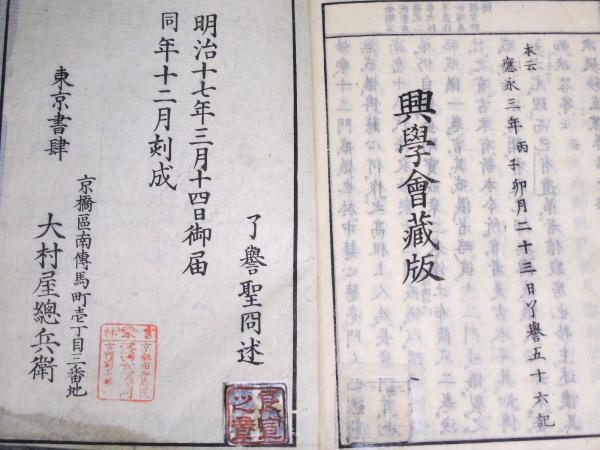 本云
應永三年丙子卯月二十三日了譽五十六記
興學會藏版
了譽聖冏述
明治十七年三月十四日御届
同年十二月刻成
東京書肆
京橋區南傳馬町壱丁目三番地
大村屋總兵衛
良宣之章